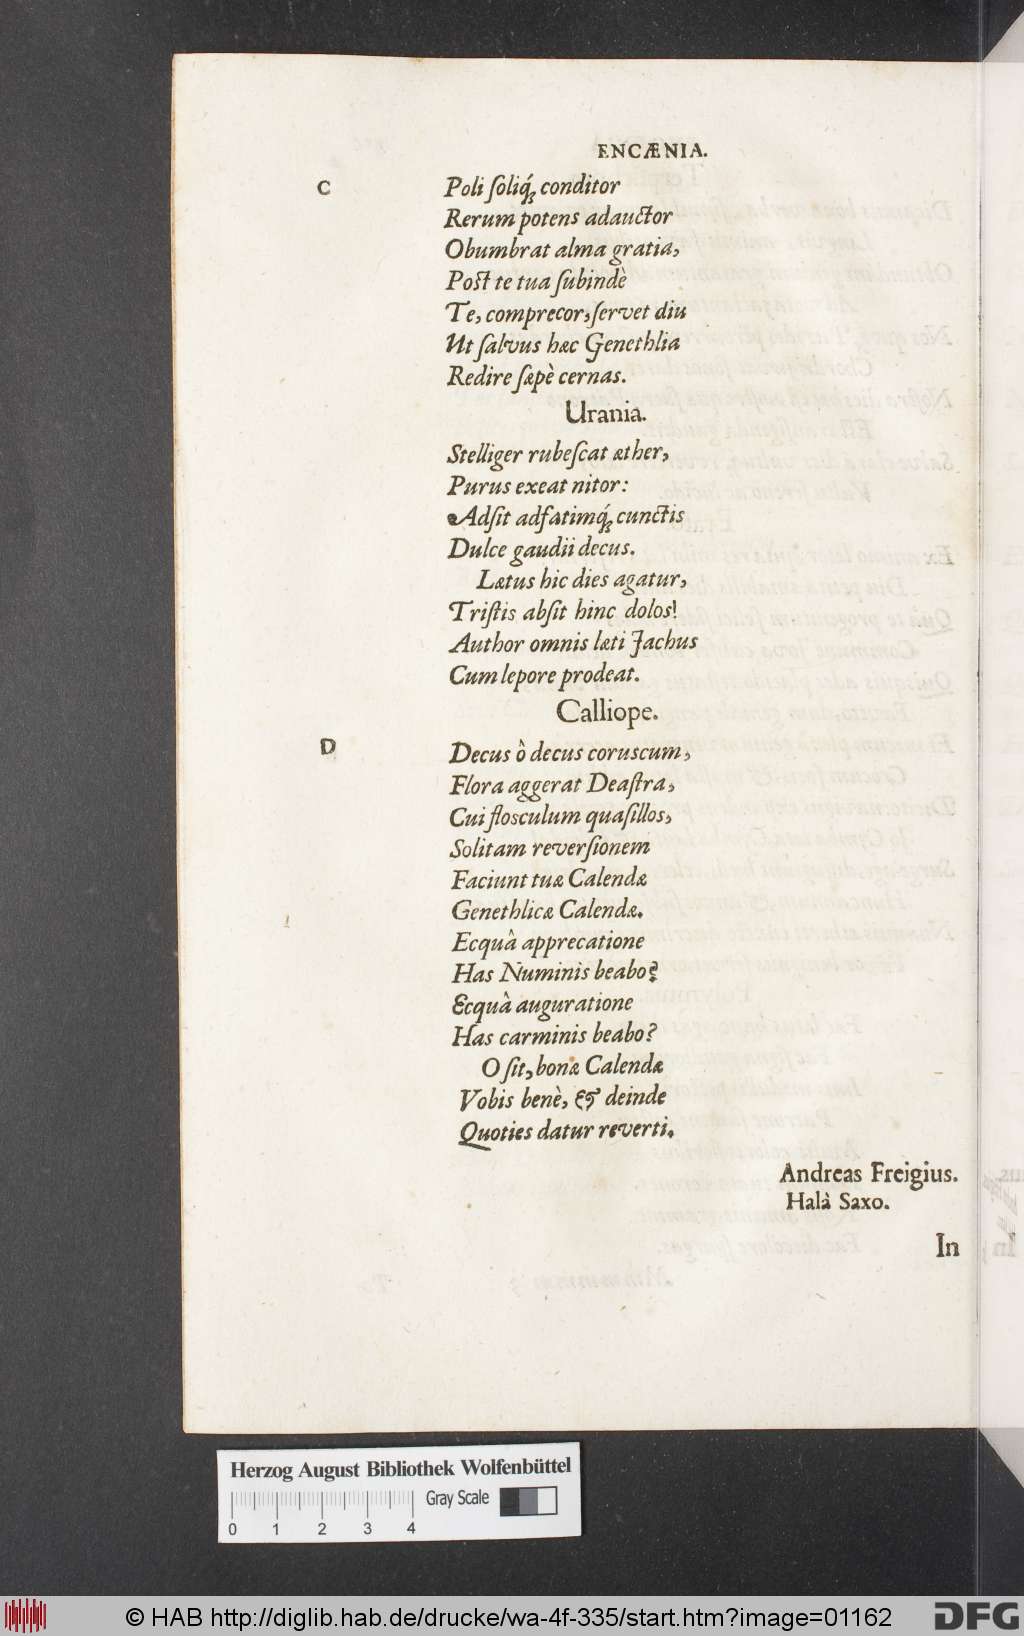 ENCÆNIA.
C
Poli ſoliq́; conditor
Rerum potens adauctor
Obumbrat alma gratia,
Poſt te tua ſubindè
Te, comprecor, ſervet diu
Ut ſalvus hæc Genethlia
Redire ſæpè cernas.
Urania.
Stelliger rubeſcat æther,
Purus exeat nitor:
Adſit adfatimq́; cunctis
Dulce gaudii decus.
Lætus hic dies agatur,
Triſtis abſit hinc dolos!
Author omnis læti Jachus
Cum lepore prodeat.
Calliope.
D
Decus ò decus coruscum,
Flora aggerat Deaſtra,
Cui floſculum quaſillos,
Solitam reverſionem
Faciunt tuæ Calendæ
Genethlicæ Calendæ.
Ecquâ apprecatione
Has Numinis beabo?
Ecquâ auguratione
Has carminis beabo?
O ſit, bonæ Calendæ
Vobis benè, & deinde
Quoties datur reverti.
Andreas Freigius.
Halà Saxo.
In
Herzog August Bibliothek Wolfenbüttel
Gray Scale
0 1 2 3 4
© HAB http://diglib.hab.de/drucke/wa-4f-335/start.htm?image=01162
DFG